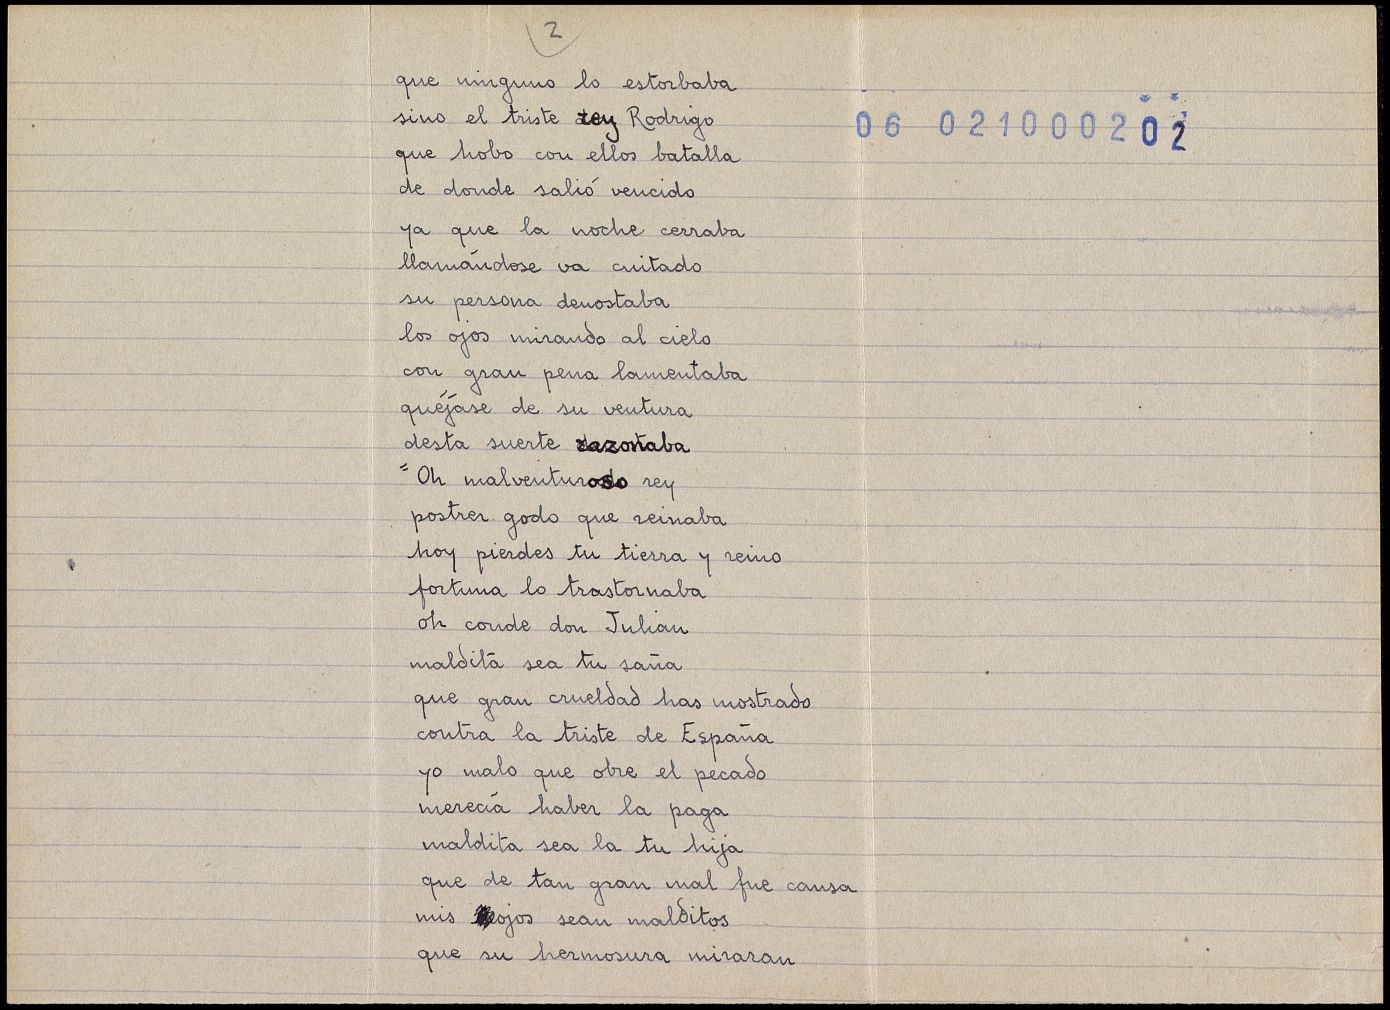 2
que ninguno lo estorbaba
06 02100020 2
sino el triste rey Rodrigo
que hobo con ellos batalla
de donde salió vencido
ya que la noche cerraba
llamándose va cuitado
su persona denostaba
los ojos mirando al cielo
con gran pena lamentaba
quéjase de su ventura
desta suerte razonaba
"Oh malventuroso rey
postrer godo que reinaba
hoy pierdes tu tierra y reino
fortuna lo trastornaba
oh conde don Julian
maldita sea tu saña
que gran crueldad has mostrado
contra la triste de España
yo malo que obre el pecado
merecía haber la paga
maldita sea la tu hija
que de tan gran mal fue causa
mis ojos sean malditos
que su hermosura miraran